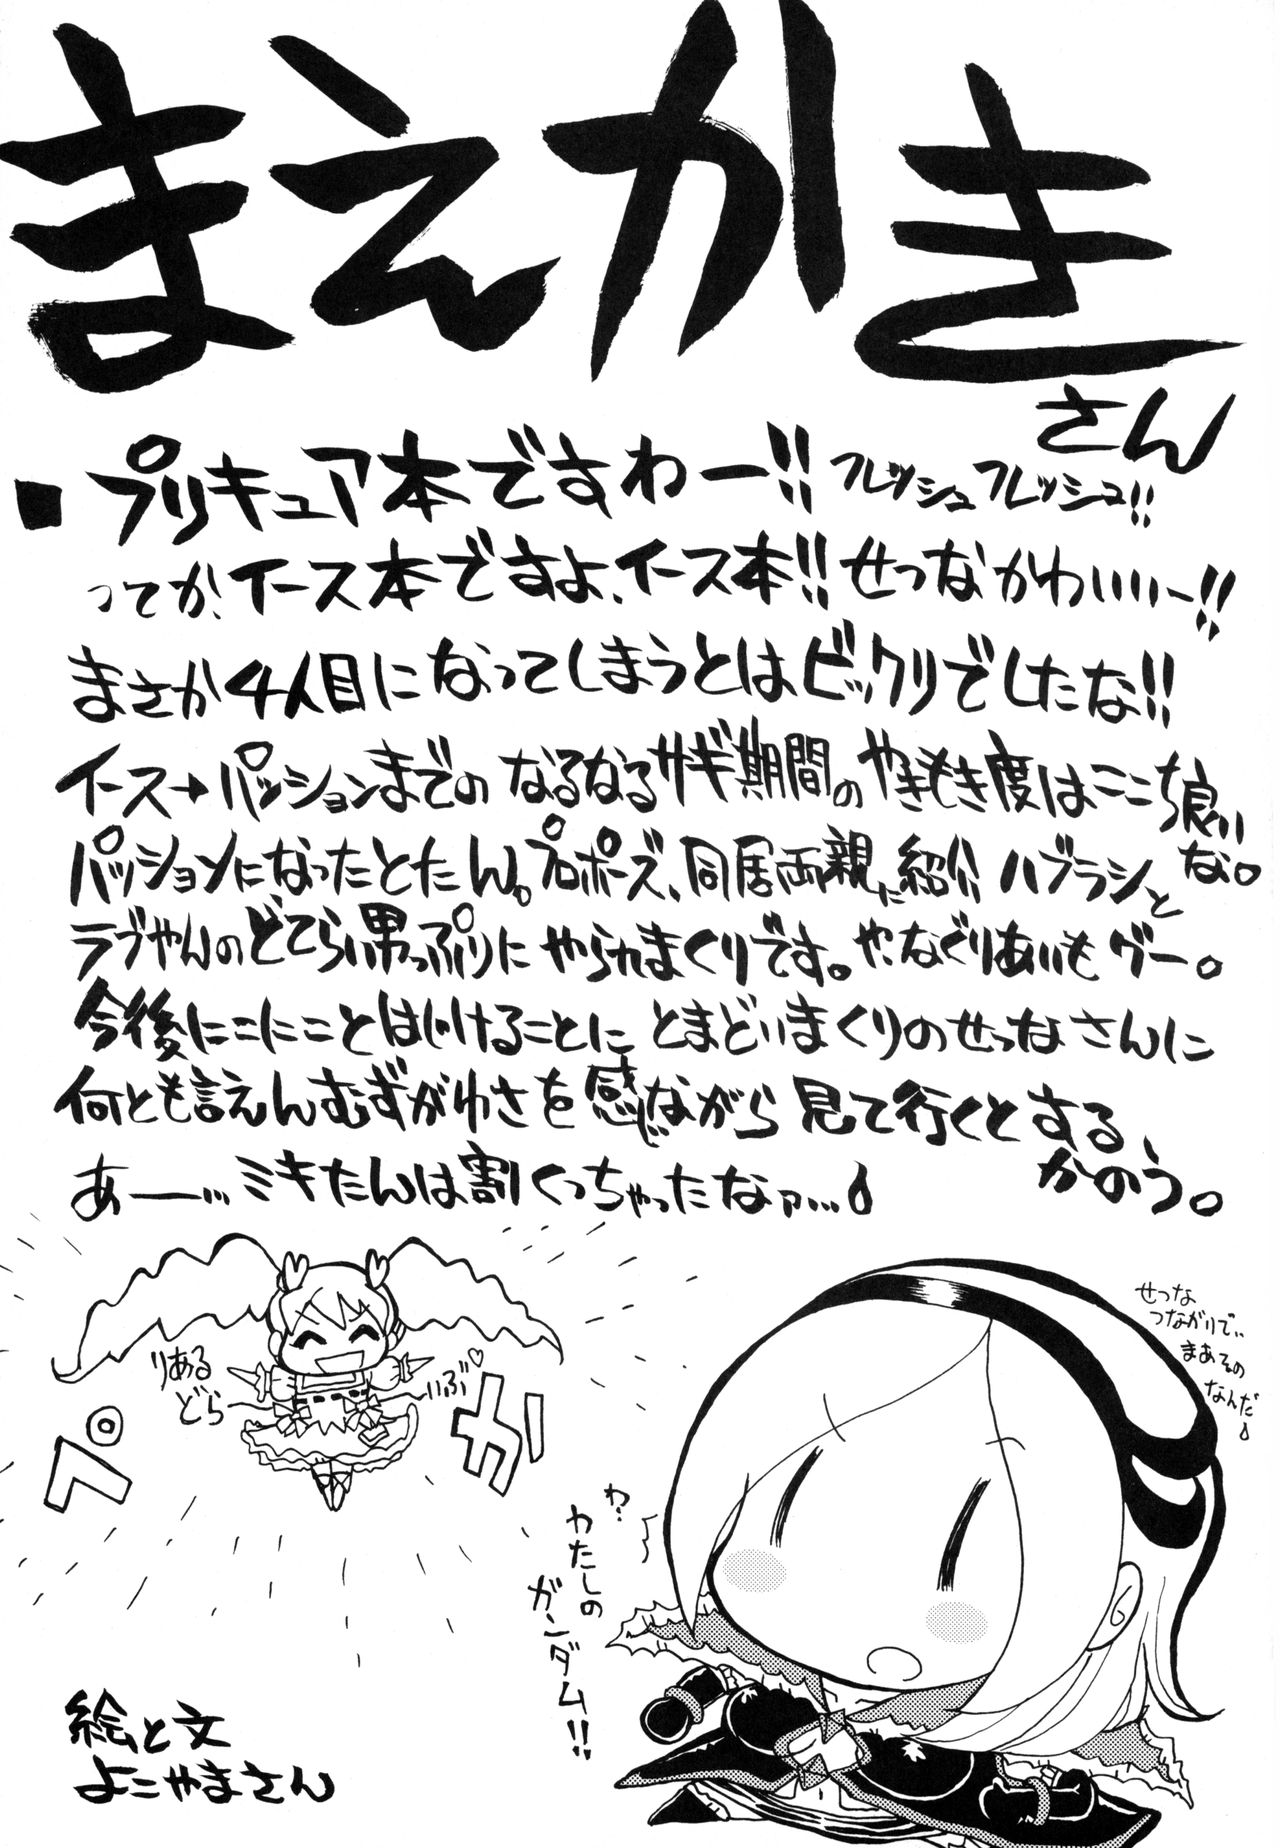 まえかき
さん
■プリキュア本ですわー!! フレッシュフレッシュ!!
ってか、イース本ですよ、イース本!! せつなかわいいー!!
まさか4人目になってしまうとはビックリでしたな!!
イース→パッションまでのなるなるサギ期間のやきもき度はここち良いな。
パッションになったとたん。プロポーズ、同居両親に紹介ハブラシと
ラブやんのどてらい男っぷりにやられまくりです。や、なぐりあいもグー。
今後にこにことはじけることにとまどいまくりのせつなさんに
何とも言えんむずがゆさを感じながら見て行くとする、かのう。
あー…ミキたんは割くっちゃったなァ…
りある
どら
いぶ♡
ペカ
せつな
つながりで‥
まあその
なんだ
わ?
わたしの
ガンダム!!
絵と文
よこやまさん